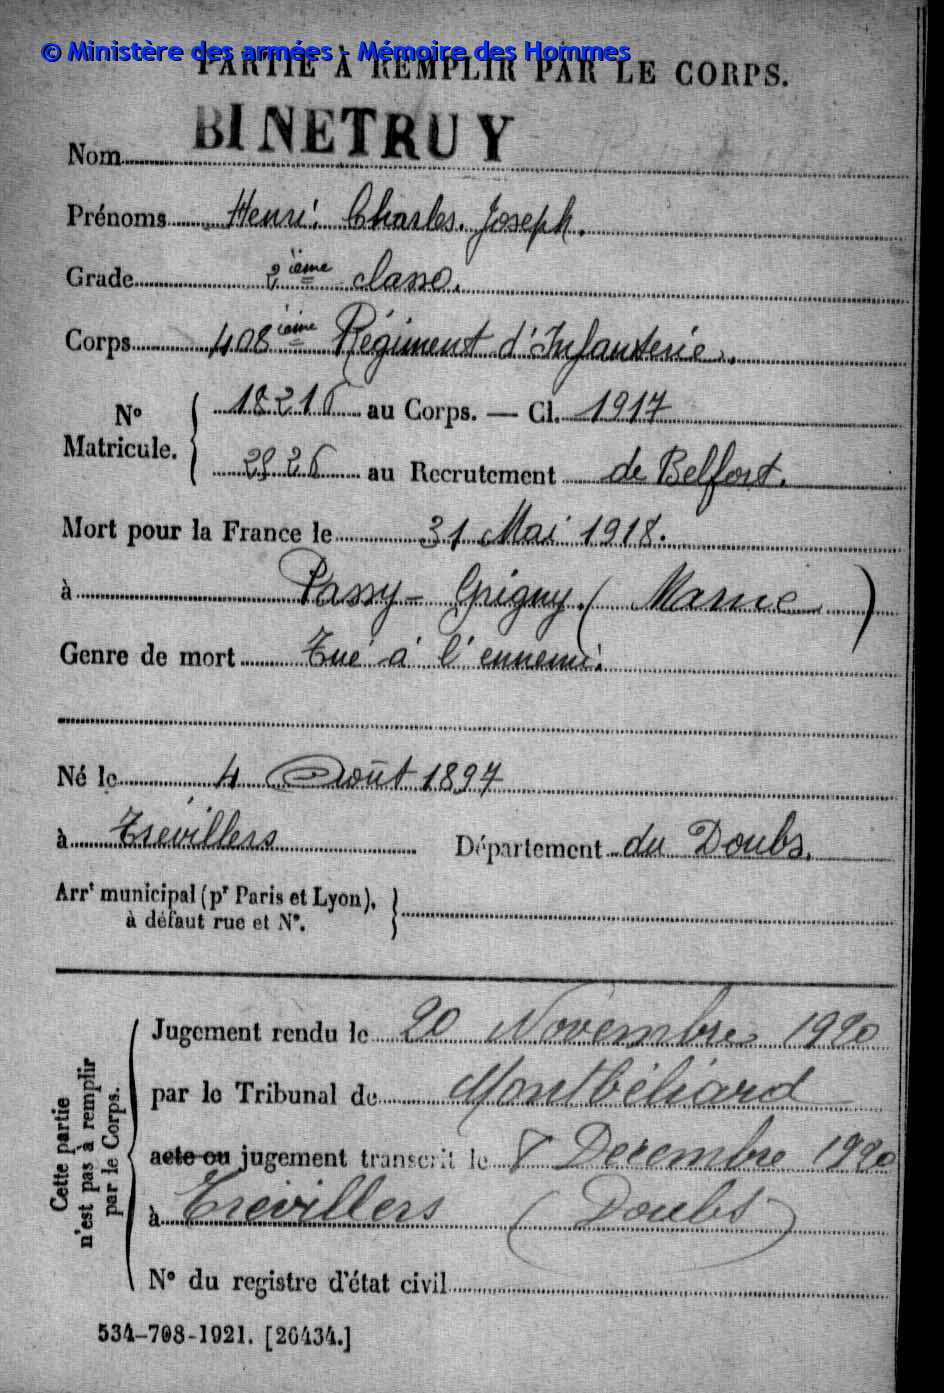 © Ministère des armées - Mémoire des Hommes
PARTIE À REMPLIR PAR LE CORPS.
Nom BINETRUY
Prénoms Henri Charles Joseph.
Grade 2ième classe.
Corps 408ième Régiment d'Infanterie.
N° Matricule. 18216 au Corps. — Cl. 1917
2926 au Recrutement de Belfort.
Mort pour la France le 31 Mai 1918.
à Passy-Grigny. (Marne)
Genre de mort Tué à l'ennemi.
Né le 4 Août 1897
à Trévillers Département du Doubs.
Arrt municipal (pr Paris et Lyon),
à défaut rue et N°.
Cette partie
n'est pas à remplir
par le Corps.
Jugement rendu le 20 Novembre 1920
par le Tribunal de Montbéliard
acte ou jugement transcrit le 8 Decembre 1920
à Trévillers (Doubs)
N° du registre d'état civil
534-708-1921. [26434.]